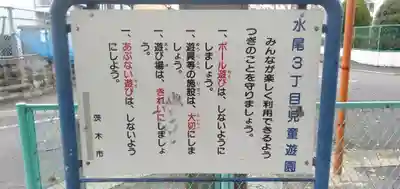 水尾3丁目児童遊園
みんなが楽しく利用できるよう
つぎのことを守りましょう。
一、ボール遊びは、しないように
しましょう。
一、遊具等の施設は、大切にしま
しょう。
一、遊び場は、きれいにしましょ
う。
一、あぶない遊びは、しないよう
にしよう。
茨木市